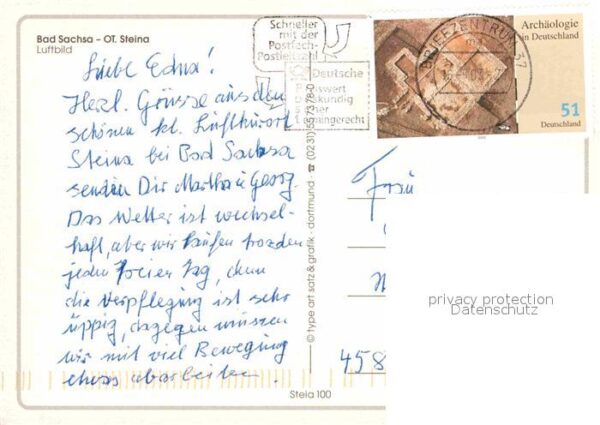 Bad Sachsa - OT. Steina
Luftbild
Liebe Edna!
Herzl. Grüsse aus dem
schönen kl. Luftkurort
Steina bei Bad Sachsa
senden Dir Martha u Georg.
Das Wetter ist wechsel-
haft, aber wir laufen trozden
jeden freien Tag, denn
die Verpflegung ist sehr
üppig, dagegen müssen
wir mit viel Bewegung
etwas abarbeiten.
Schneller
mit der
Postfach-
Postleitzahl
Deutsche
BRIEFZENTRUM 37
Archäologie
in Deutschland
51
Deutschland
© type art satz & grafik · dortmund · ☎ (0231) 557378-0
Frau
458
privacy protection
Datenschutz
Steia 100